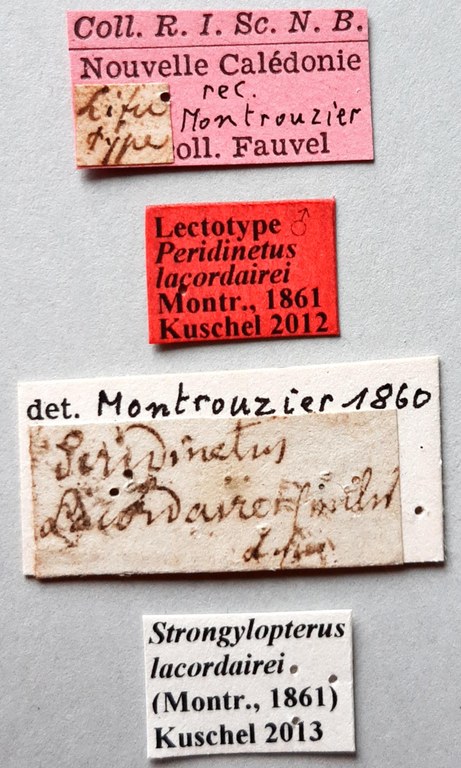 Coll. R. I. Sc. N. B.
Nouvelle Calédonie
rec.
Lifu Montrouzier
type oll. Fauvel
Lectotype ♂
Peridinetus
lacordairei
Montr., 1861
Kuschel 2012
det. Montrouzier 1860
Peridinetus
Lacordairei
Lifu
Strongylopterus
lacordairei
(Montr., 1861)
Kuschel 2013